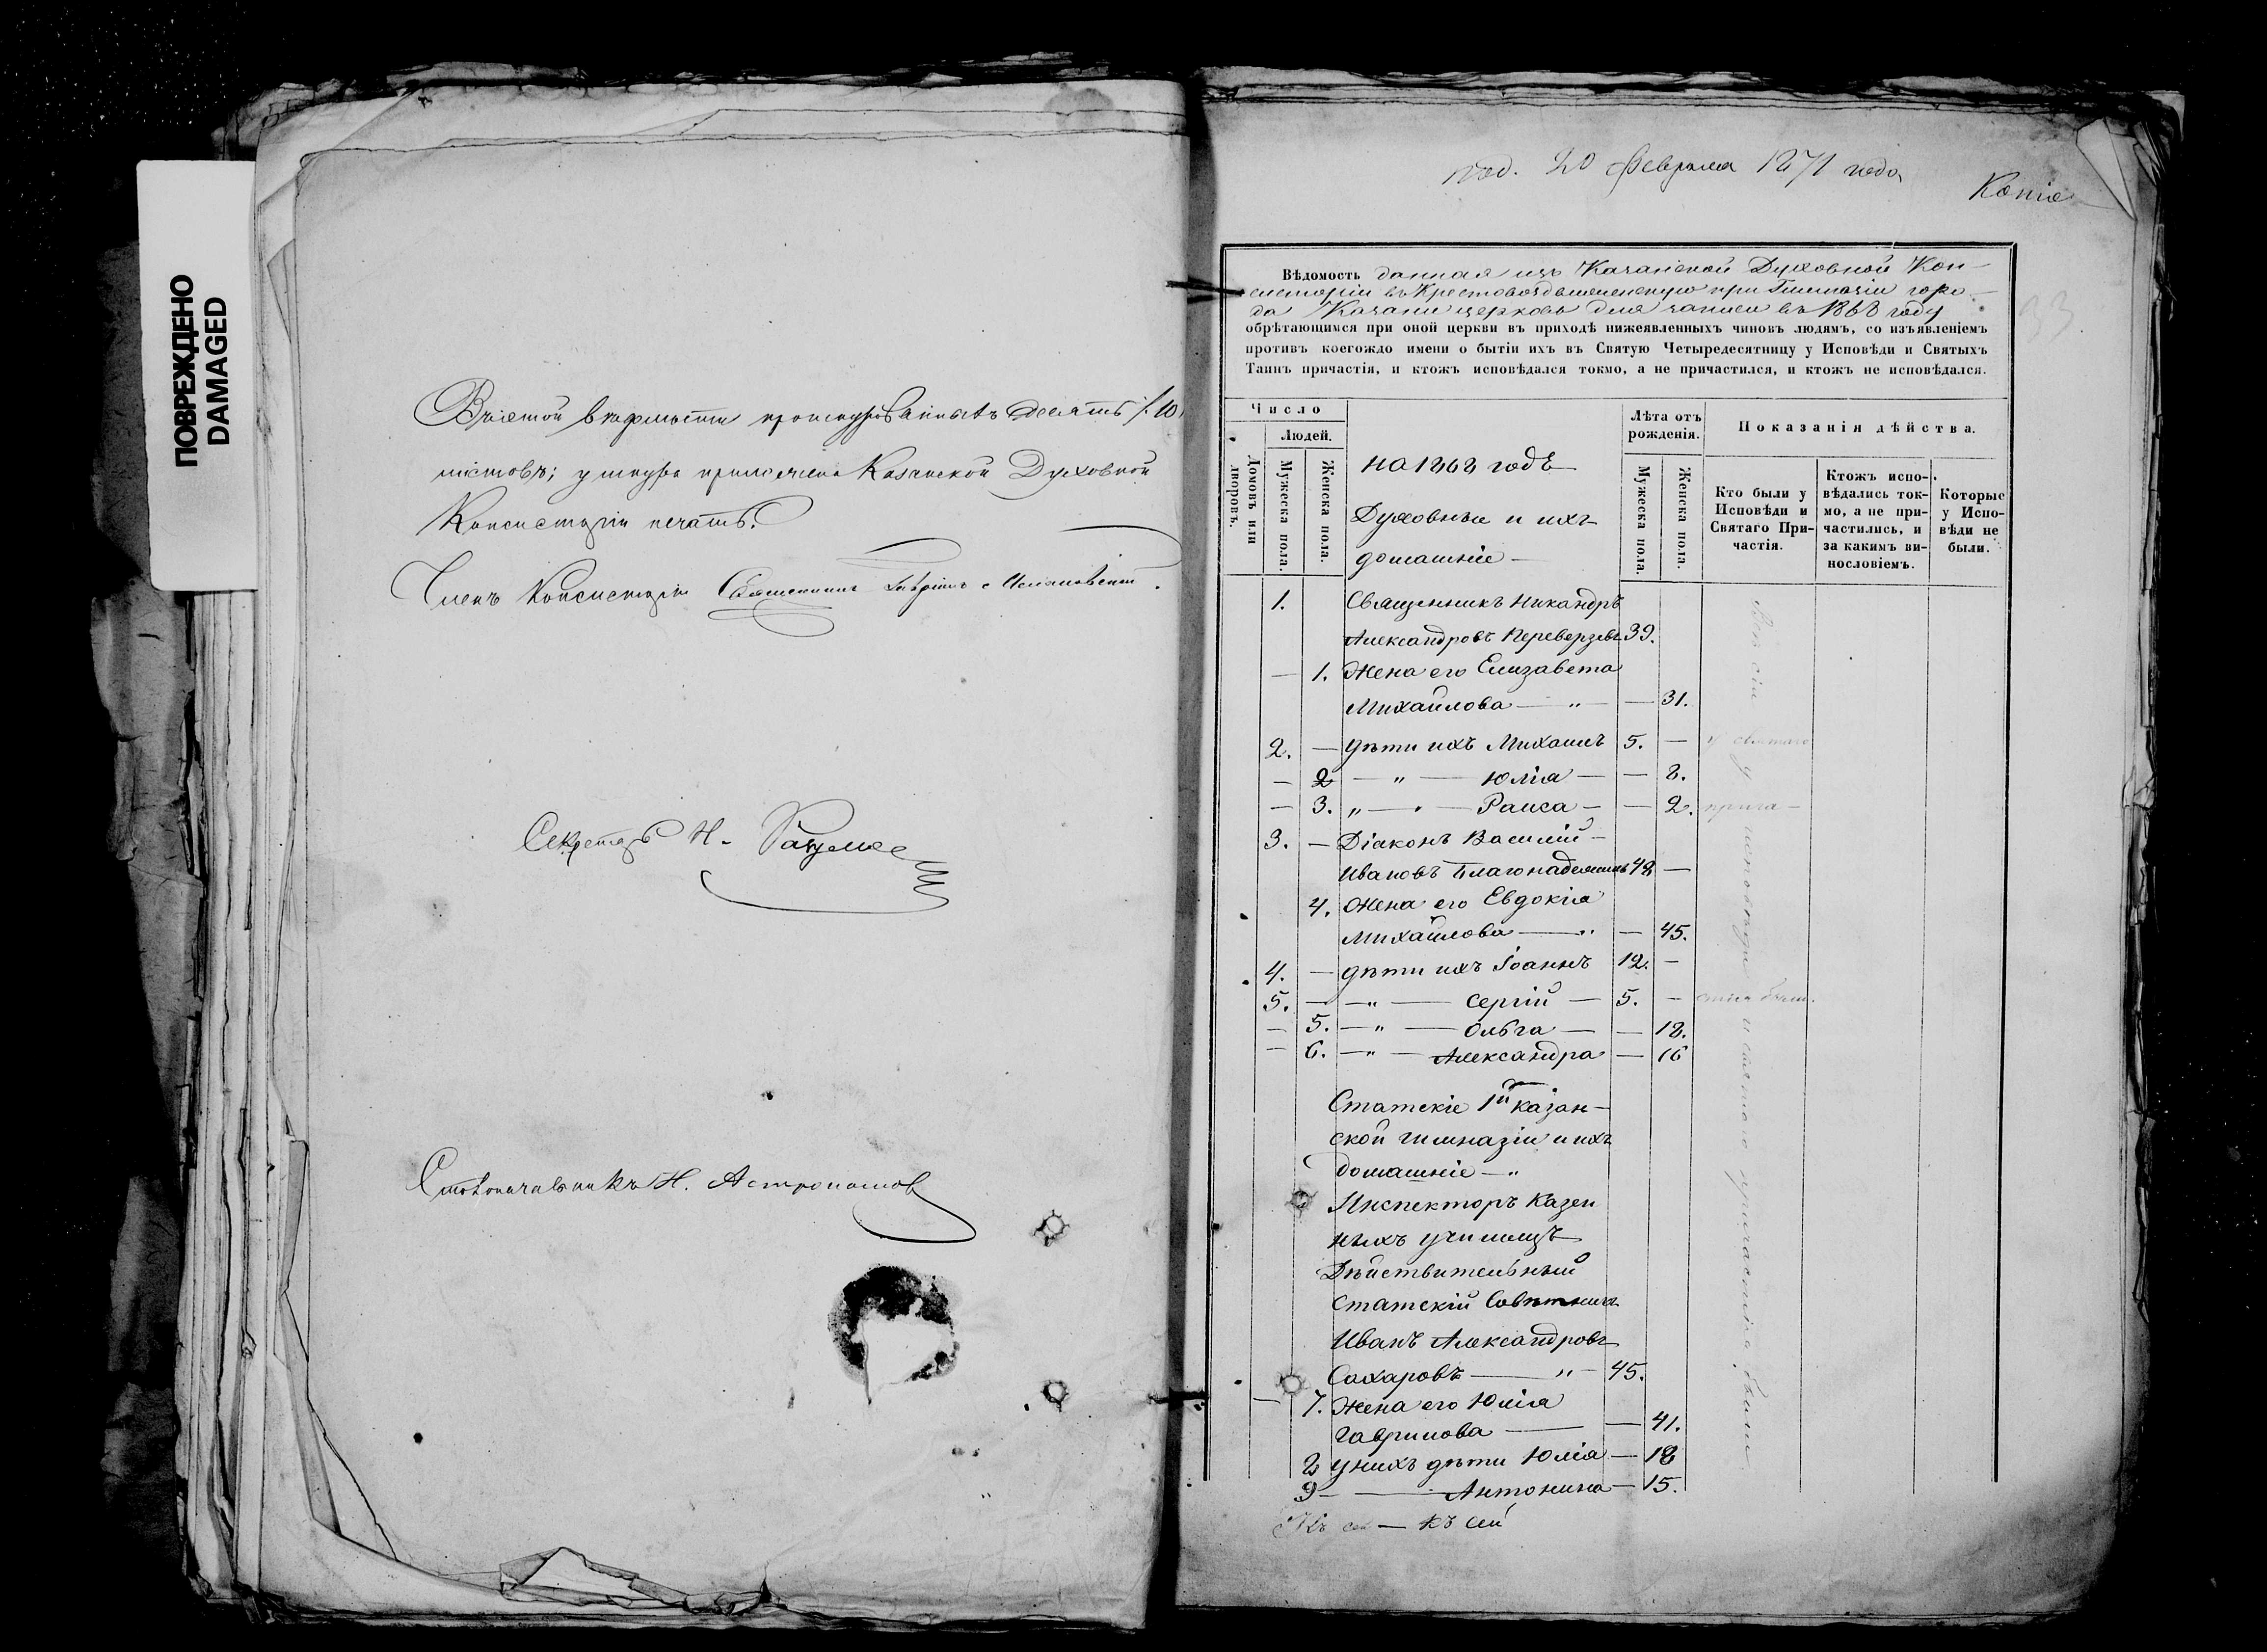 ПОВРЕЖДЕНО
DAMAGED
В сей десять /:10
листовъ; у шнура приложена Казанской Духовной
Консисторіи печать.
Членъ Консисторіи Священникъ
Секретарь Н.
Столоначальникъ Н. Астрономов
20 февраля 1871 года
Копія
33
Вѣдомость данная изъ Казанской Духовной Кон-
систоріи въ Крестовоздвиженскую при Гимназіи горо-
да Казани церковь для записи въ 1868 году
обрѣтающимся при оной церкви въ приходѣ нижеявленныхъ чиновъ людямъ, со изъявленіемъ
противъ коегождо имени о бытіи ихъ въ Святую Четыредесятницу у Исповѣди и Святыхъ
Таинъ причастія, и ктожъ исповѣдался токмо, а не причастился, и ктожъ не исповѣдался.
Число
Людей.
Домовъ или дворовъ.
Мужеска пола.
Женска пола.
на 1868 годъ
Духовные и ихъ
домашніе —
Лѣта отъ рожденія.
Мужеска пола.
Женска пола.
Показанія дѣйства.
Кто были у Исповѣди и Святаго При-частія.
Ктожъ испо-вѣдались ток-мо, а не при-частились, и за какимъ ви-нословіемъ.
Которые у Испо-вѣди не были.
1. Священникъ Никандръ
Александровъ Переверзевъ 39.
— 1. Жена его Елизавета
Михайлова — „ — — 31.
2. — дѣти ихъ Михаилъ 5. —
— 2 — „ — Юлія — — 8.
— 3. „ — „ — Раиса — — 2.
3. — Діаконъ Василій —
Ивановъ Благонадеждинъ 48 —
4. Жена его Евдокія
Михайлова — „ — 45.
4. — дѣти ихъ Іоаннъ 12. —
5. — — „ — Сергій — 5. —
— 5. — „ — Ольга — — 18.
— 6. — „ — Александра — 16
Всѣ сіи у исповѣди и святаго причастія были
у святаго
прича-
стія были.
Статскіе 1й Казан-
ской гимназіи и ихъ
домашніе — „
Инспекторъ Казен
ныхъ училищъ
Дѣйствительный
Статскій Совѣтникъ
Иванъ Александровъ
Сахаровъ — „ — 45.
— 7. Жена его Юлія
Гаврилова — — 41.
8 у нихъ дѣти Юлія — 18
9 — — Антонина — 15.
Къ сей — къ сей